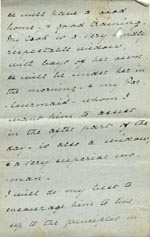 he will have a good
home & good training.
My Cook is a very kindly
respectable widow,
with boys of her own
he will be under her in
the morning, & my Par-
lourmaid, whom I
want him to assist
in the after part of the
day - is also a widow
& a very superior wo-
man.
I will do my best to
encourage him to live
up to the principles in